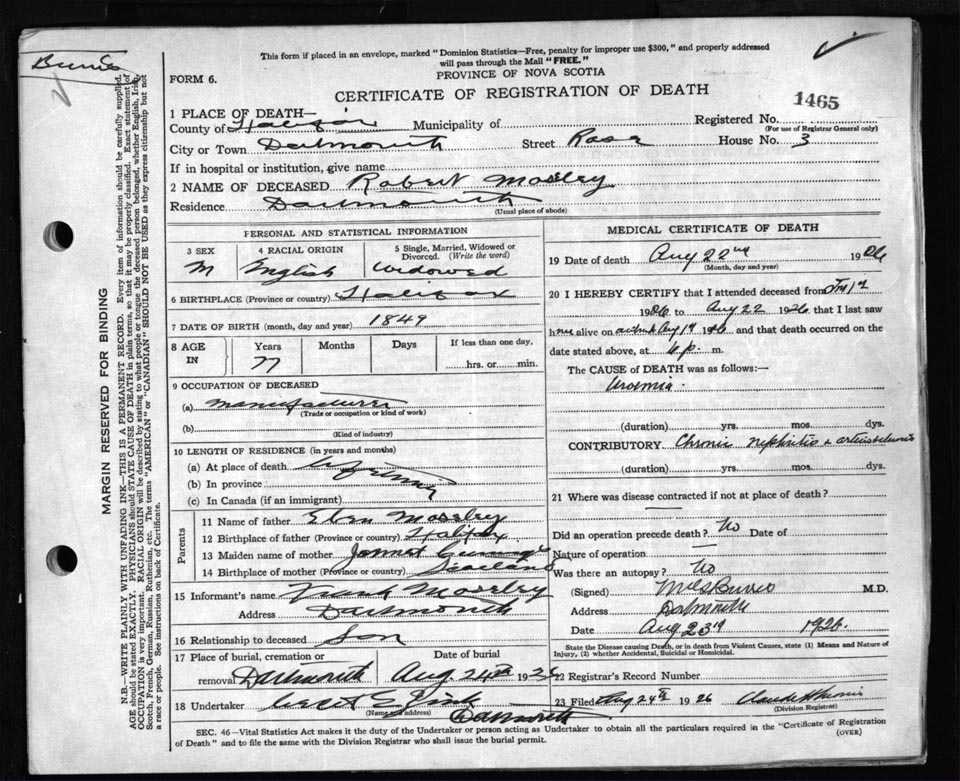 Burris
This form if placed in an envelope, marked "Dominion Statistics—Free, penalty for improper use $300," and properly addressed
will pass through the Mail "FREE."
PROVINCE OF NOVA SCOTIA
FORM 6.
CERTIFICATE OF REGISTRATION OF DEATH
1465
1 PLACE OF DEATH—
County of Halifax Municipality of
Registered No.
(For use of Registrar General only)
City or Town Dartmouth Street Rose House No. 3
If in hospital or institution, give name
2 NAME OF DECEASED Robert Moseley
Residence Dartmouth
(Usual place of abode)
PERSONAL AND STATISTICAL INFORMATION
3 SEX
M
4 RACIAL ORIGIN
English
5 Single, Married, Widowed or
Divorced. (Write the word)
Widowed
6 BIRTHPLACE (Province or country) Halifax
7 DATE OF BIRTH (month, day and year) 1849
8 AGE
IN
Years
77
Months
Days
If less than one day,
hrs. or min.
9 OCCUPATION OF DECEASED
(a) Manufacturer
(Trade or occupation or kind of work)
(b)
(Kind of industry)
10 LENGTH OF RESIDENCE (in years and months)
(a) At place of death
(b) In province
(c) In Canada (if an immigrant)
Parents
11 Name of father Eben Moseley
12 Birthplace of father (Province or country) Halifax
13 Maiden name of mother
14 Birthplace of mother (Province or country) Scotland
15 Informant's name Frank Moseley
Address Dartmouth
16 Relationship to deceased Son
17 Place of burial, cremation or
removal Dartmouth
Date of burial
Aug. 24th 1926
18 Undertaker
(Name and address)
Dartmouth
MEDICAL CERTIFICATE OF DEATH
19 Date of death Aug 22nd 1926
(Month, day and year)
20 I HEREBY CERTIFY that I attended deceased from
1926 to Aug 22 1926 that I last saw
h alive on 1926 and that death occurred on the
date stated above, at 6 p. m.
The CAUSE of DEATH was as follows:—
Uraemia.
(duration) yrs. mos. dys.
CONTRIBUTORY Chronic nephritis + arteriosclerosis
(duration) yrs. mos. dys.
21 Where was disease contracted if not at place of death?
Did an operation precede death? No Date of
Nature of operation —
Was there an autopsy? No
(Signed) Burris M.D.
Address Dartmouth
Date Aug 23rd 1926.
State the Disease causing Death, or in death from Violent Causes, state (1) Means and Nature of
Injury, (2) whether Accidental, Suicidal or Homicidal.
22 Registrar's Record Number
23 Filed Aug 24th 1926
(Division Registrar)
SEC. 46—Vital Statistics Act makes it the duty of the Undertaker or person acting as Undertaker to obtain all the particulars required in the "Certificate of Registration
of Death" and to file the same with the Division Registrar who shall issue the burial permit.
(OVER)
MARGIN RESERVED FOR BINDING
N.B.—WRITE PLAINLY WITH UNFADING INK—THIS IS A PERMANENT RECORD. Every item of information should be carefully supplied.
AGE should be stated EXACTLY. PHYSICIANS should STATE CAUSE OF DEATH in plain terms, so that it may be properly classified. Exact statement of
OCCUPATION is very important. RACIAL ORIGIN will be described by stating to what people or tongue the deceased person belonged, whether English, Irish,
Scotch, French, German, Russian, Ruthenian, etc. The terms "AMERICAN" or "CANADIAN" SHOULD NOT BE USED as they express citizenship but not
a race or people. See instructions on back of Certificate.